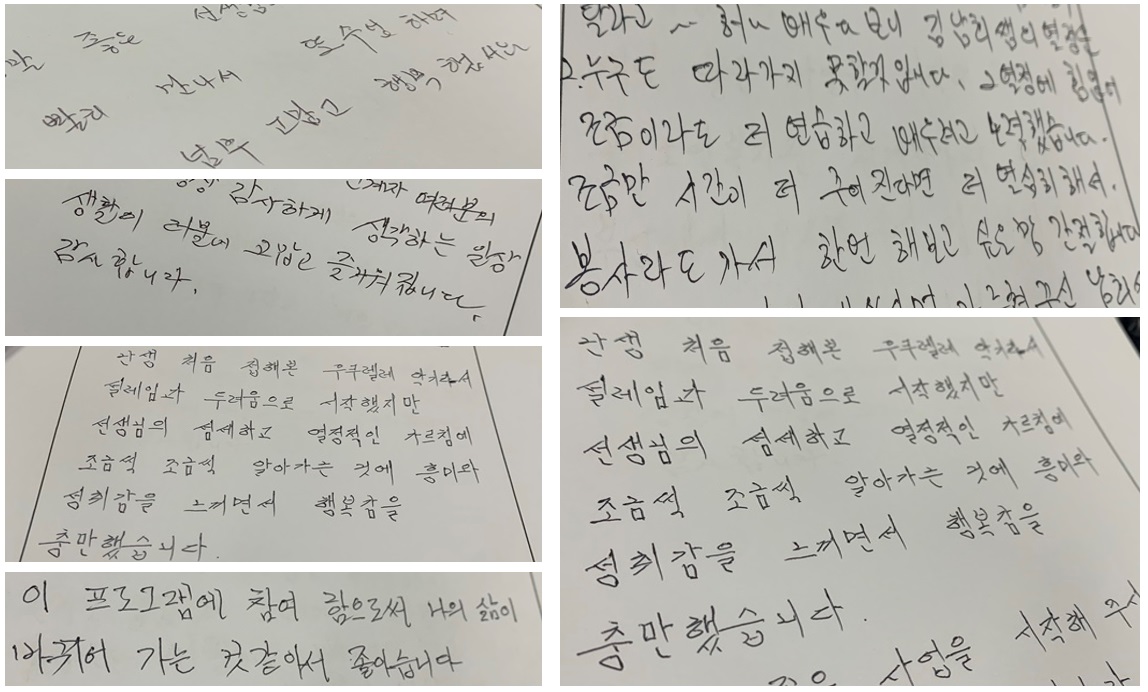 좋은
또 수업 하며
만나서
행복 했어요
너무 고맙고
감사하게 생각하는 일상
생활이 여러분의
러분에 고맙고 즐거워집니다
감사 합니다.
난생 처음 접해본 우쿠렐레 악기라서
설레임과 두려움으로 시작했지만
선생님의 섬세하고 열정적인 가르침에
조금씩 조금씩 알아가는 것에 흥미와
성취감을 느끼면서 행복감을
충만했습니다.
이 프로그램에 참여 함으로써 나의 삶이
바뀌어 가는 것같아서 좋아습니다
배우다 보니 김남희쌤의 열정은
누구도 따라가지 못할것 입니다. 그열정에 힘입어
조금이라도 더 연습하고 배우려고 노력했습니다.
조금만 시간이 더 주어진다면 더 연습히 해서.
봉사라도 가서 한번 해보고 싶은 맘 간절합니다
난생 처음 접해본 우쿠렐레 악기라서
설레임과 두려움으로 시작했지만
선생님의 섬세하고 열정적인 가르침에
조금씩 조금씩 알아가는 것에 흥미와
성취감을 느끼면서 행복감을
충만했습니다.
사업을 시작해 주